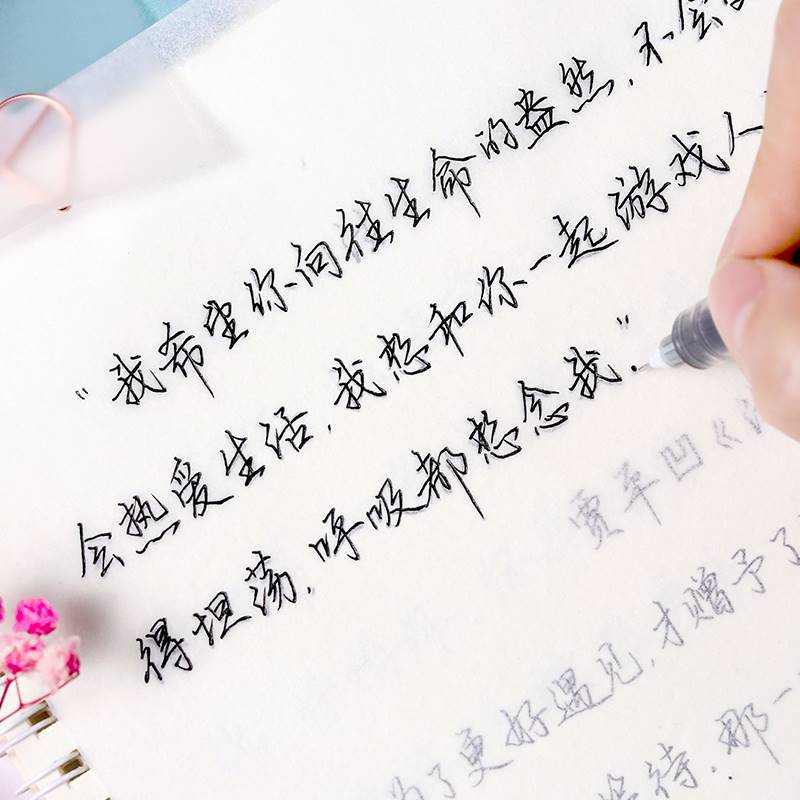 "我希望你向往生命的盎然，不会
会热爱生活，我想和你一起游戏人
得坦荡，呼吸都想念我."
贾平凹《
为了更好遇见，才赠予了
待，那一